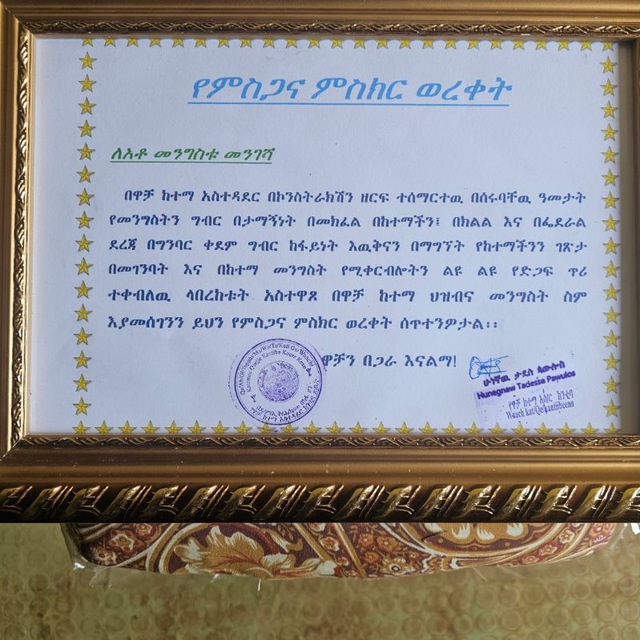 የምስጋና ምስክር ወረቀት
ለአቶ መንግስቱ መንገሻ
በዋቻ ከተማ አስተዳደር በኮንስትራክሽን ዘርፍ ተሰማርተዉ በሰሩባቸዉ ዓመታት
የመንግስትን ግብር በታማኝነት በመክፈል በከተማችን፤ በክልል እና በፌደራል
ደረጃ በግንባር ቀደም ግብር ከፋይነት እዉቅናን በማግኘት የከተማችንን ገጽታ
በመገንባት እና በከተማ መንግስት የሚቀርብሎትን ልዩ ልዩ የድጋፍ ጥሪ
ተቀብለዉ ላበረከቱት አስተዋጾ በዋቻ ከተማ ህዝብና መንግስት ስም
እያመሰገንን ይህን የምስጋና ምስክር ወረቀት ሰጥተንዎታል፡፡
ዋቻን በጋራ እናልማ!
ታደሰ ጳዉሎስ
Hunegnaw Tadesse Pawulos
የዋቻ ከተማ